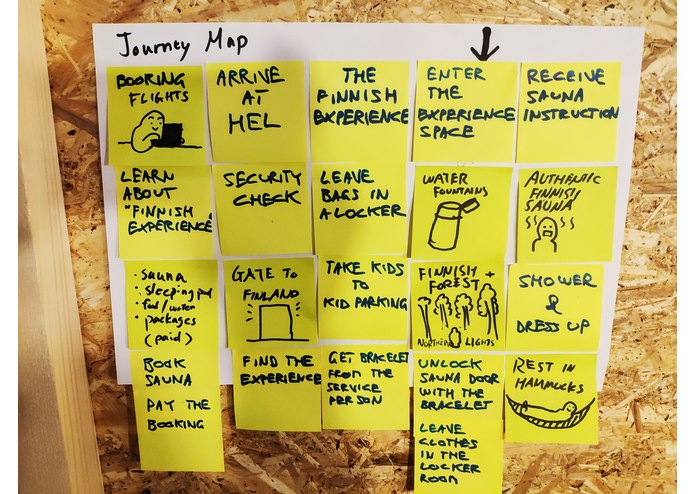 Journey Map
BOOKING
FLIGHTS
LEARN
ABOUT
"FINNISH
EXPERIENCE"
· sauna
· sleeping pod
· food/water
· packages
(paid)
BOOK
SAUNA
PAY THE
BOOKING
ARRIVE
AT
HEL
SECURITY
CHECK
GATE TO
FINLAND
FIND THE
EXPERIENCE
THE
FINNISH
EXPERIENCE
LEAVE
BAGS IN
A LOCKER
TAKE KIDS
TO
KID PARKING
GET BRACELET
FROM THE
SERVICE
PERSON
ENTER
THE
EXPERIENCE
SPACE
WATER
FOUNTAINS
FINNISH +
FOREST
NORTHERN LIGHTS
UNLOCK
SAUNA DOOR
WITH THE
BRACELET
LEAVE
CLOTHES
IN THE
LOCKER
ROOM
RECEIVE
SAUNA
INSTRUCTION
AUTHENTIC
FINNISH
SAUNA
SHOWER
&
DRESS UP
REST IN
HAMMOCKS